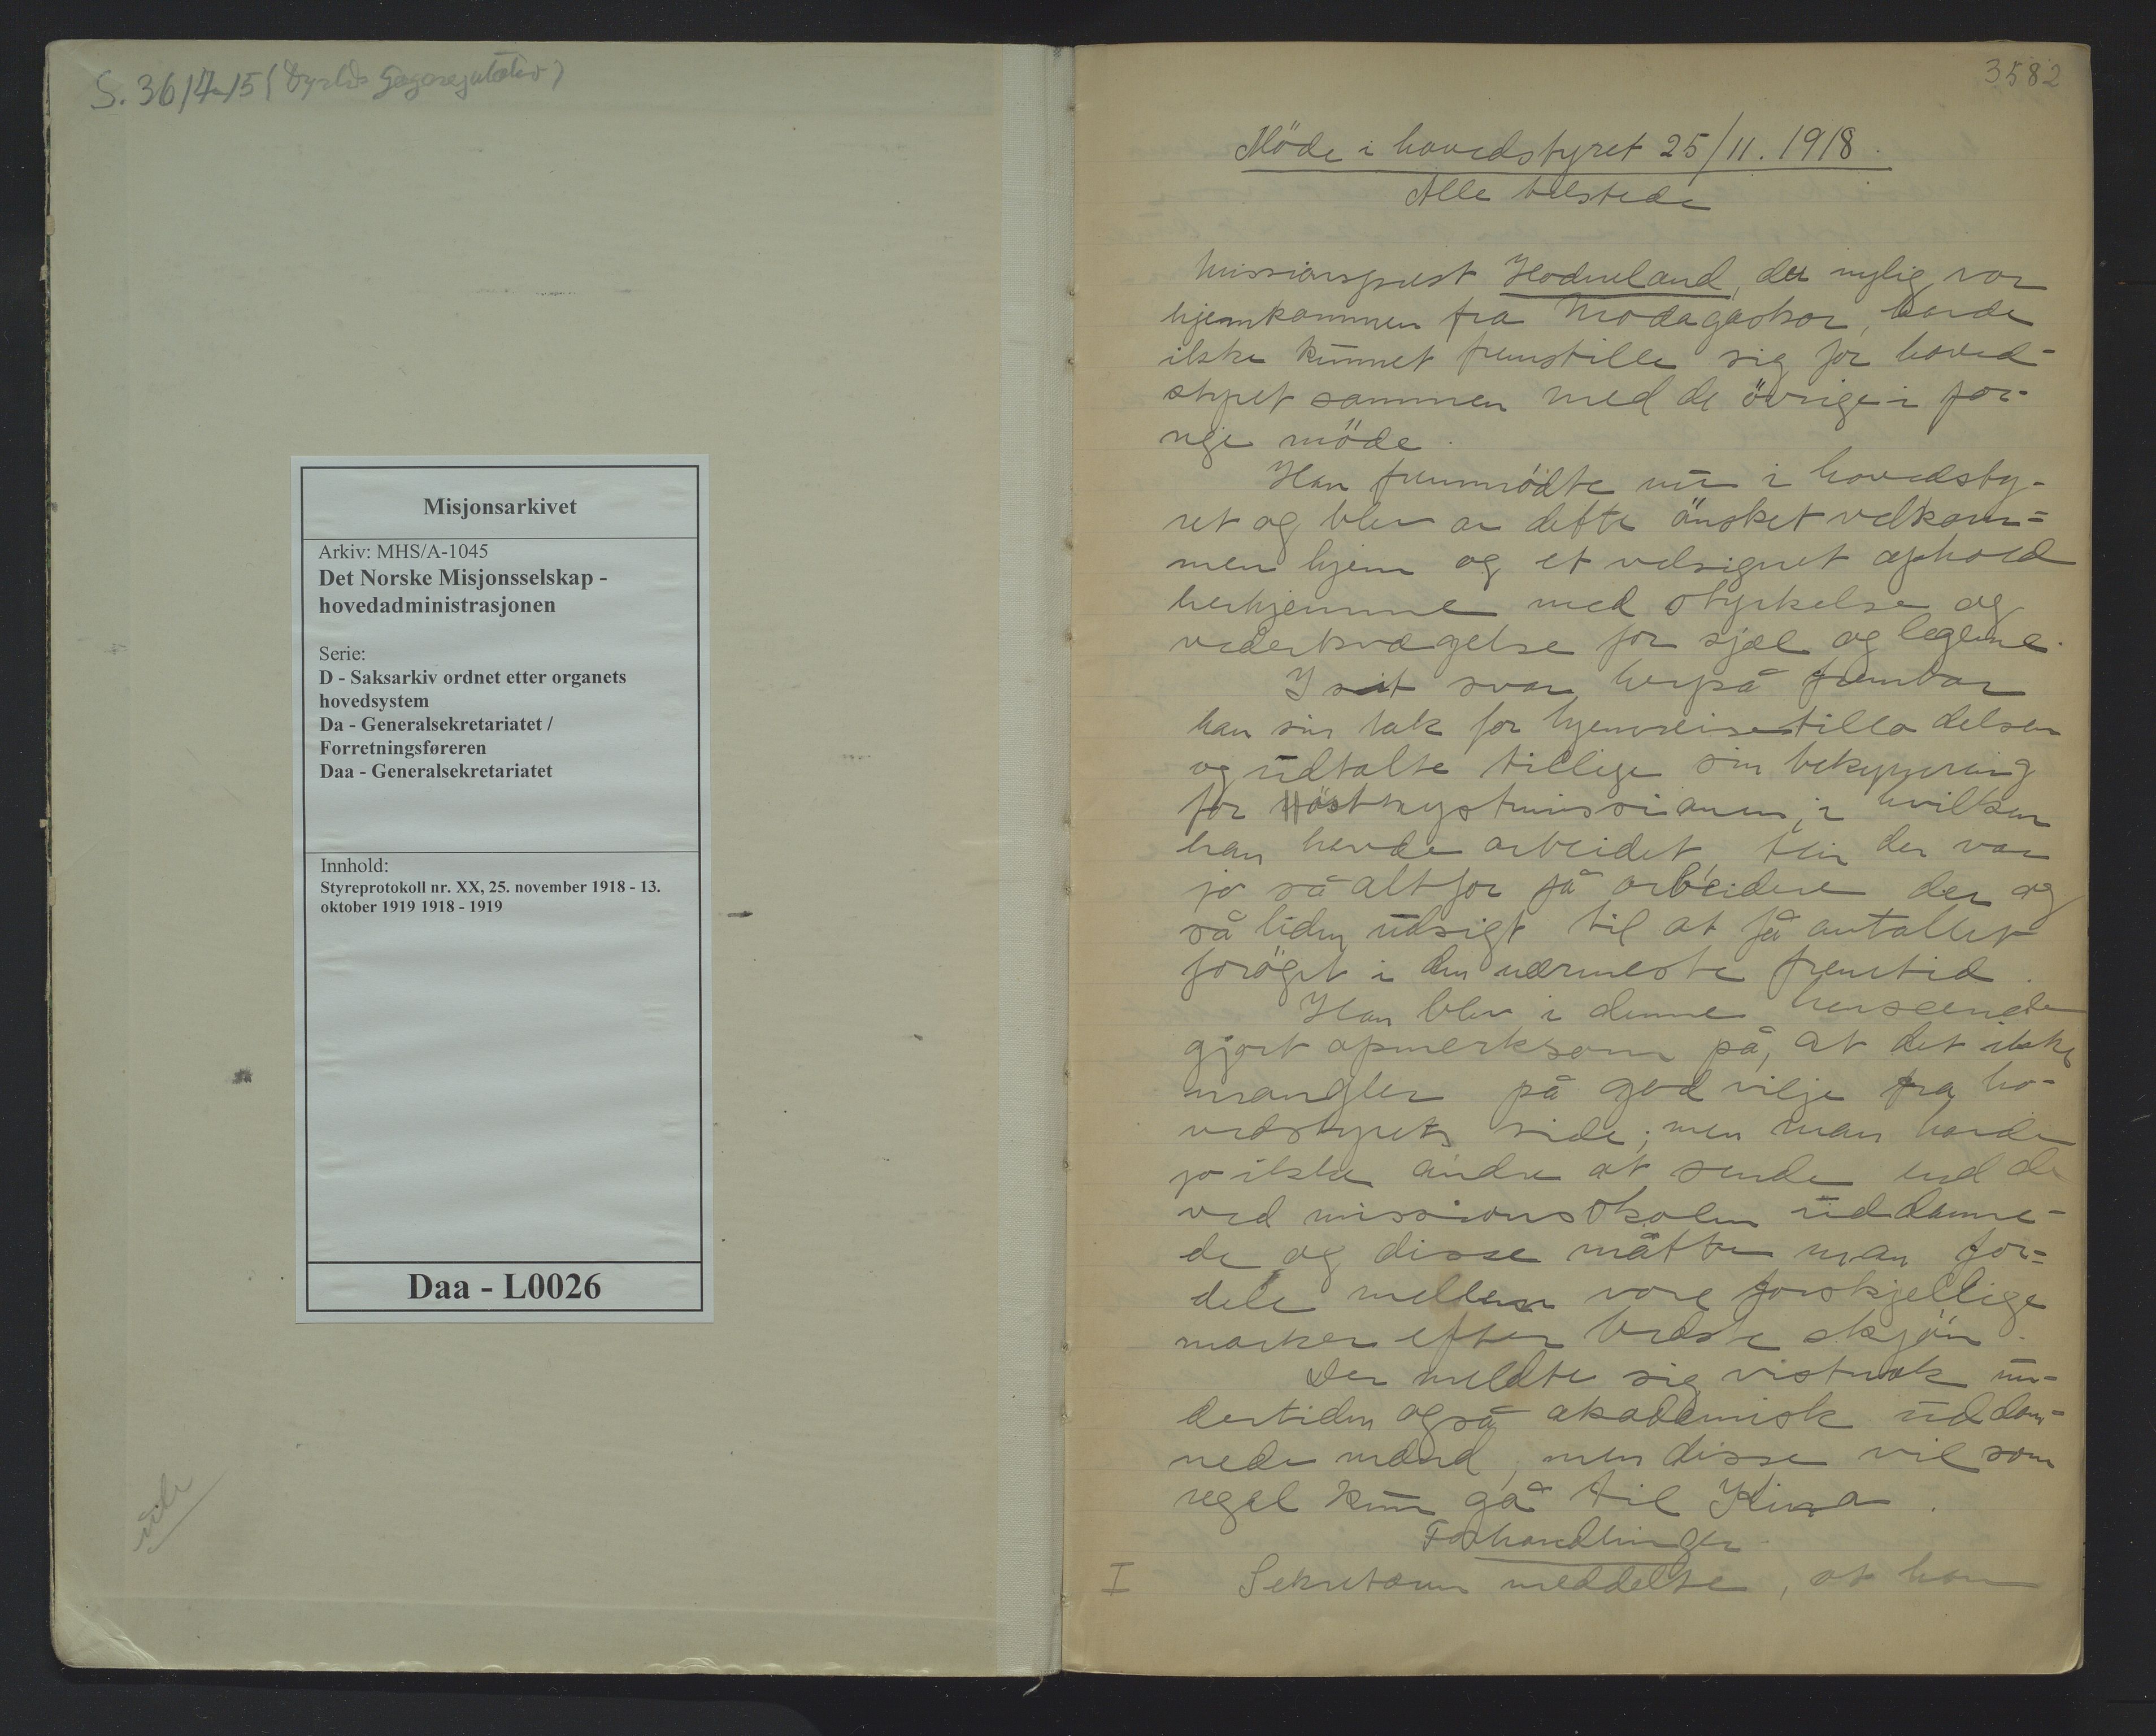 S. 36/7-15 (
Misjonsarkivet
Arkiv: MHS/A-1045
Det Norske Misjonsselskap -
hovedadministrasjonen
Serie:
D - Saksarkiv ordnet etter organets
hovedsystem
Da - Generalsekretariatet /
Forretningsføreren
Daa - Generalsekretariatet
Innhold:
Styreprotokoll nr. XX, 25. november 1918 - 13.
oktober 1919 1918 - 1919
Daa - L0026
3582
Möde i hovedstyret 25/11. 1918.
Alle tilstede
Missionsprest Hodneland, der nylig var
hjemkommen fra Madagaskar, havde
ikke kunnet fremstille sig for hoved-
styret sammen med de övrige i for-
rige möde.
Han fremmödte nu i hovedsty-
ret og blev av dette önsket velkom=
men hjem og et velsignet ophold
herhjemme med styrkelse og
vederkvægelse for sjæl og legeme.
I sit svar herpå frembar
han sin tak for hjemreisetilladelsen
og udtalte tillige sin bekymring
for östkystmissionen, i hvilken
han havde arbeidet, thi der var
jo så altfor få arbeidere der og
så liden udsigt til at få antallet
foröget i den nærmeste fremtid.
Han blev i denne henseende
gjort opmerksom på, at det ikke
mangler på god vilje fra ho-
vedstyrets side; men man havde
jo ikke andre at sende end de
ved missionsskolen uddanne-
de og disse måtte man for=
dele mellem vore forskjellige
marker efter bedste skjön.
Der meldte sig vistnok un-
dertiden også akademisk uddan-
nede mænd, men disse vil som
regel kun gå til Kina.
Forhandlinger
I Sekretæren meddelte, at han